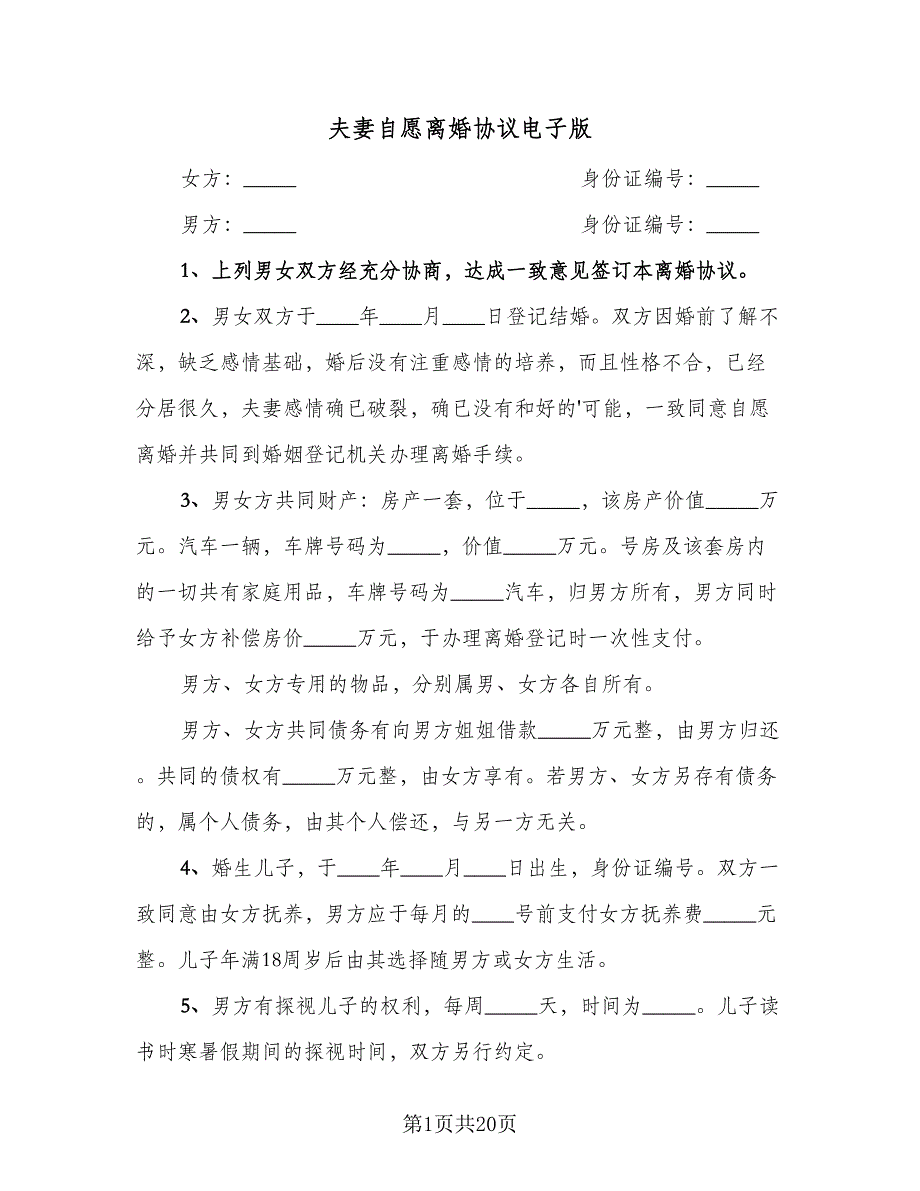 夫妻自愿离婚协议电子版
女方：_____ 身份证编号：_____
男方：_____ 身份证编号：_____
1、上列男女双方经充分协商，达成一致意见签订本离婚协议。
2、男女双方于____年____月____日登记结婚。双方因婚前了解不
深，缺乏感情基础，婚后没有注重感情的培养，而且性格不合，已经
分居很久，夫妻感情确已破裂，确已没有和好的'可能，一致同意自愿
离婚并共同到婚姻登记机关办理离婚手续。
3、男女方共同财产：房产一套，位于_____，该房产价值_____万
元。汽车一辆，车牌号码为_____，价值_____万元。号房及该套房内
的一切共有家庭用品，车牌号码为_____汽车，归男方所有，男方同时
给予女方补偿房价_____万元，于办理离婚登记时一次性支付。
男方、女方专用的物品，分别属男、女方各自所有。
男方、女方共同债务有向男方姐姐借款_____万元整，由男方归还
。共同的债权有_____万元整，由女方享有。若男方、女方另存有债务
的，属个人债务，由其个人偿还，与另一方无关。
4、婚生儿子，于____年____月____日出生，身份证编号。双方一
致同意由女方抚养，男方应于每月的____号前支付女方抚养费_____元
整。儿子年满18周岁后由其选择随男方或女方生活。
5、男方有探视儿子的权利，每周_____天，时间为_____。儿子读
书时寒暑假期间的探视时间，双方另行约定。
第1页共20页